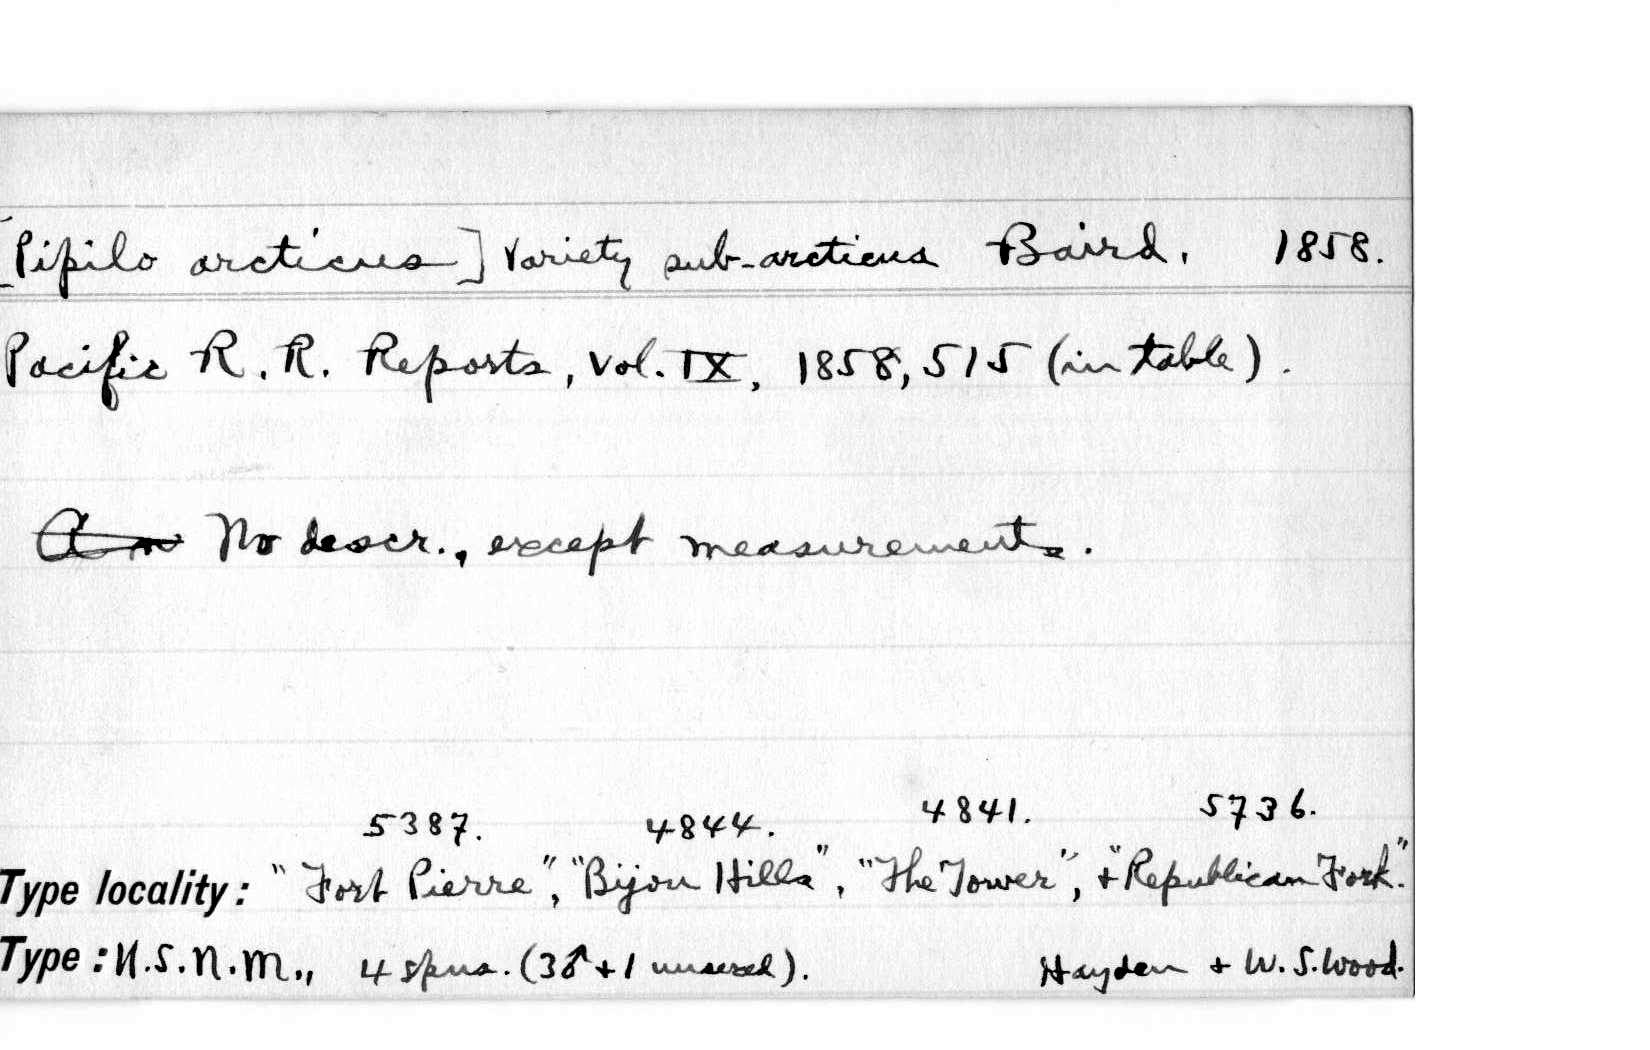 [Pipilo arcticus] variety sub-arcticus Baird. 1858.
Pacific R. R. Reports, vol. IX, 1858, 515 (in table).
No descr., except measurements.
5387. 4844. 4841. 5736.
Type locality: "Fort Pierre", "Bijou Hills", "The Tower", + "Republican Fork".
Type: U.S.N.M., 4 spns. (3♂ + 1 unsexed). Hayden + W. S. Wood.